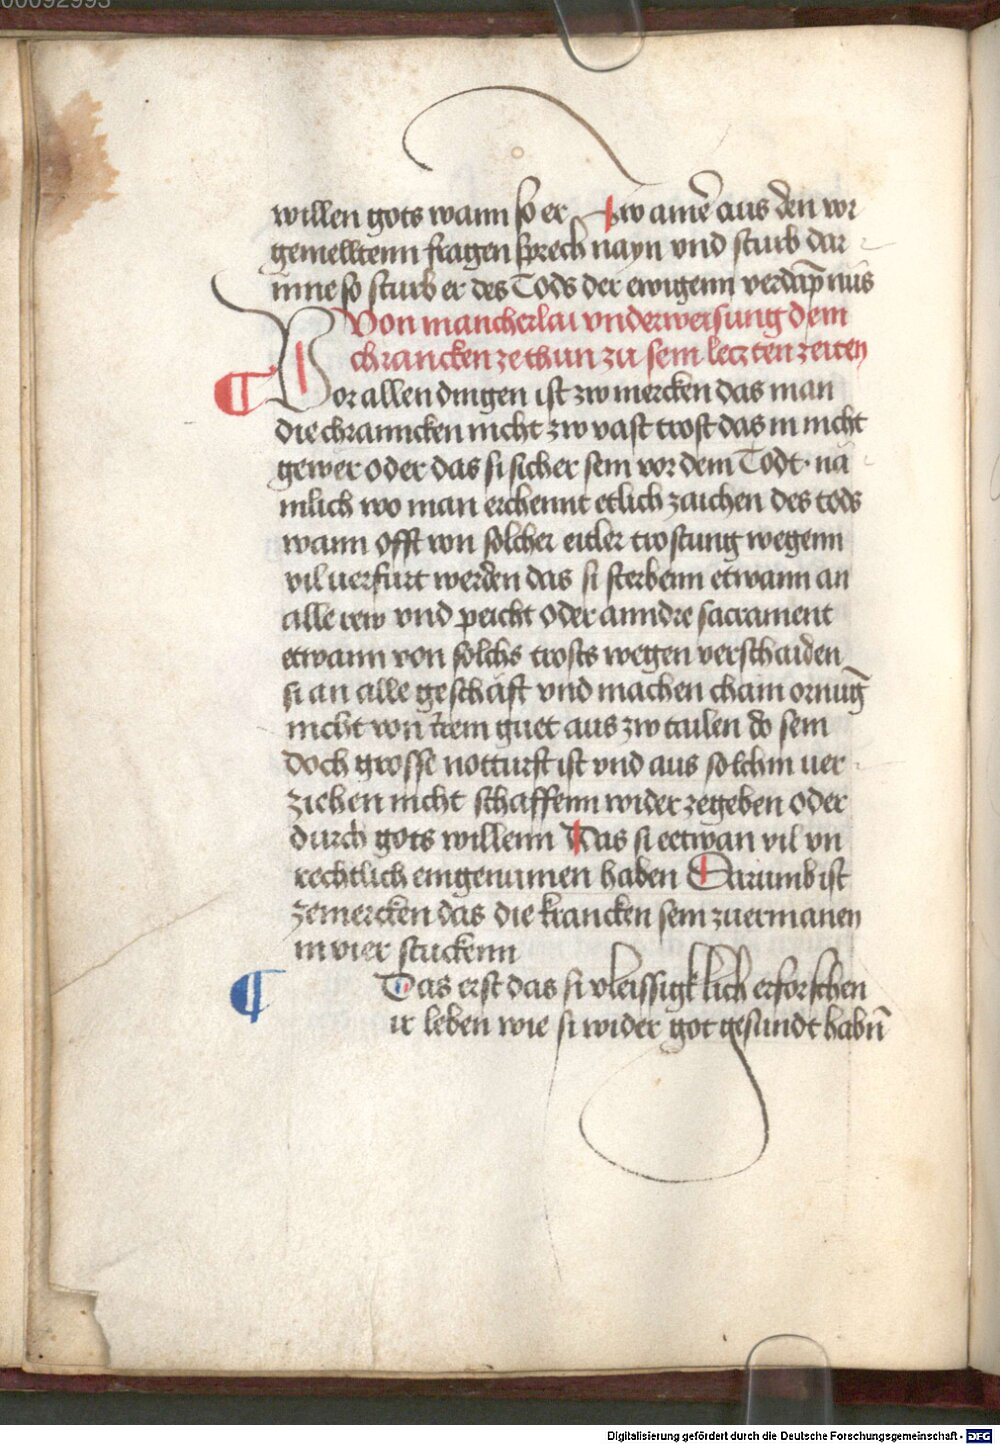 00092993
willen gots wann so er Zw ainē aus den vor
gemelltenn fragen sprech nayn vnd sturb dar
inne so sturb er des Tods der ewigenn verdāpnus
Von mancherlai vnderweisung dem
chrancken ze thun zu sein leczten zeiten
Vor allen dingen ist zw mercken das man
die chranncken nicht zw vast trost das in nicht
gewer oder das si sicher sein vor dem Todt · nä
mlich wo man erchennt etlich zaichen des tods
wann offt von solcher eitler trostung wegenn
vil uerfurt werden das si sterbenn etwann an
alle rew vnd peicht oder anndre sacrament
etwann von solchs trosts wegen verschaiden
si an alle geschäft vnd machen chain ornūg
nicht von irem guet aus zw tailen do sein
doch grosse notturft ist vnd aus solchm uer
ziehen nicht schaffenn wider zegeben oder
durch gots willenn Das si eetwan vil vn
rechtlich eingenumen haben Darumb ist
zemercken das die krancken sein zuermanen
in vier stuckenn
Das erst das si vleissigklich erforschen
ir leben wie si wider got gesundt habn̄
Digitalisierung gefördert durch die Deutsche Forschungsgemeinschaft - DFG